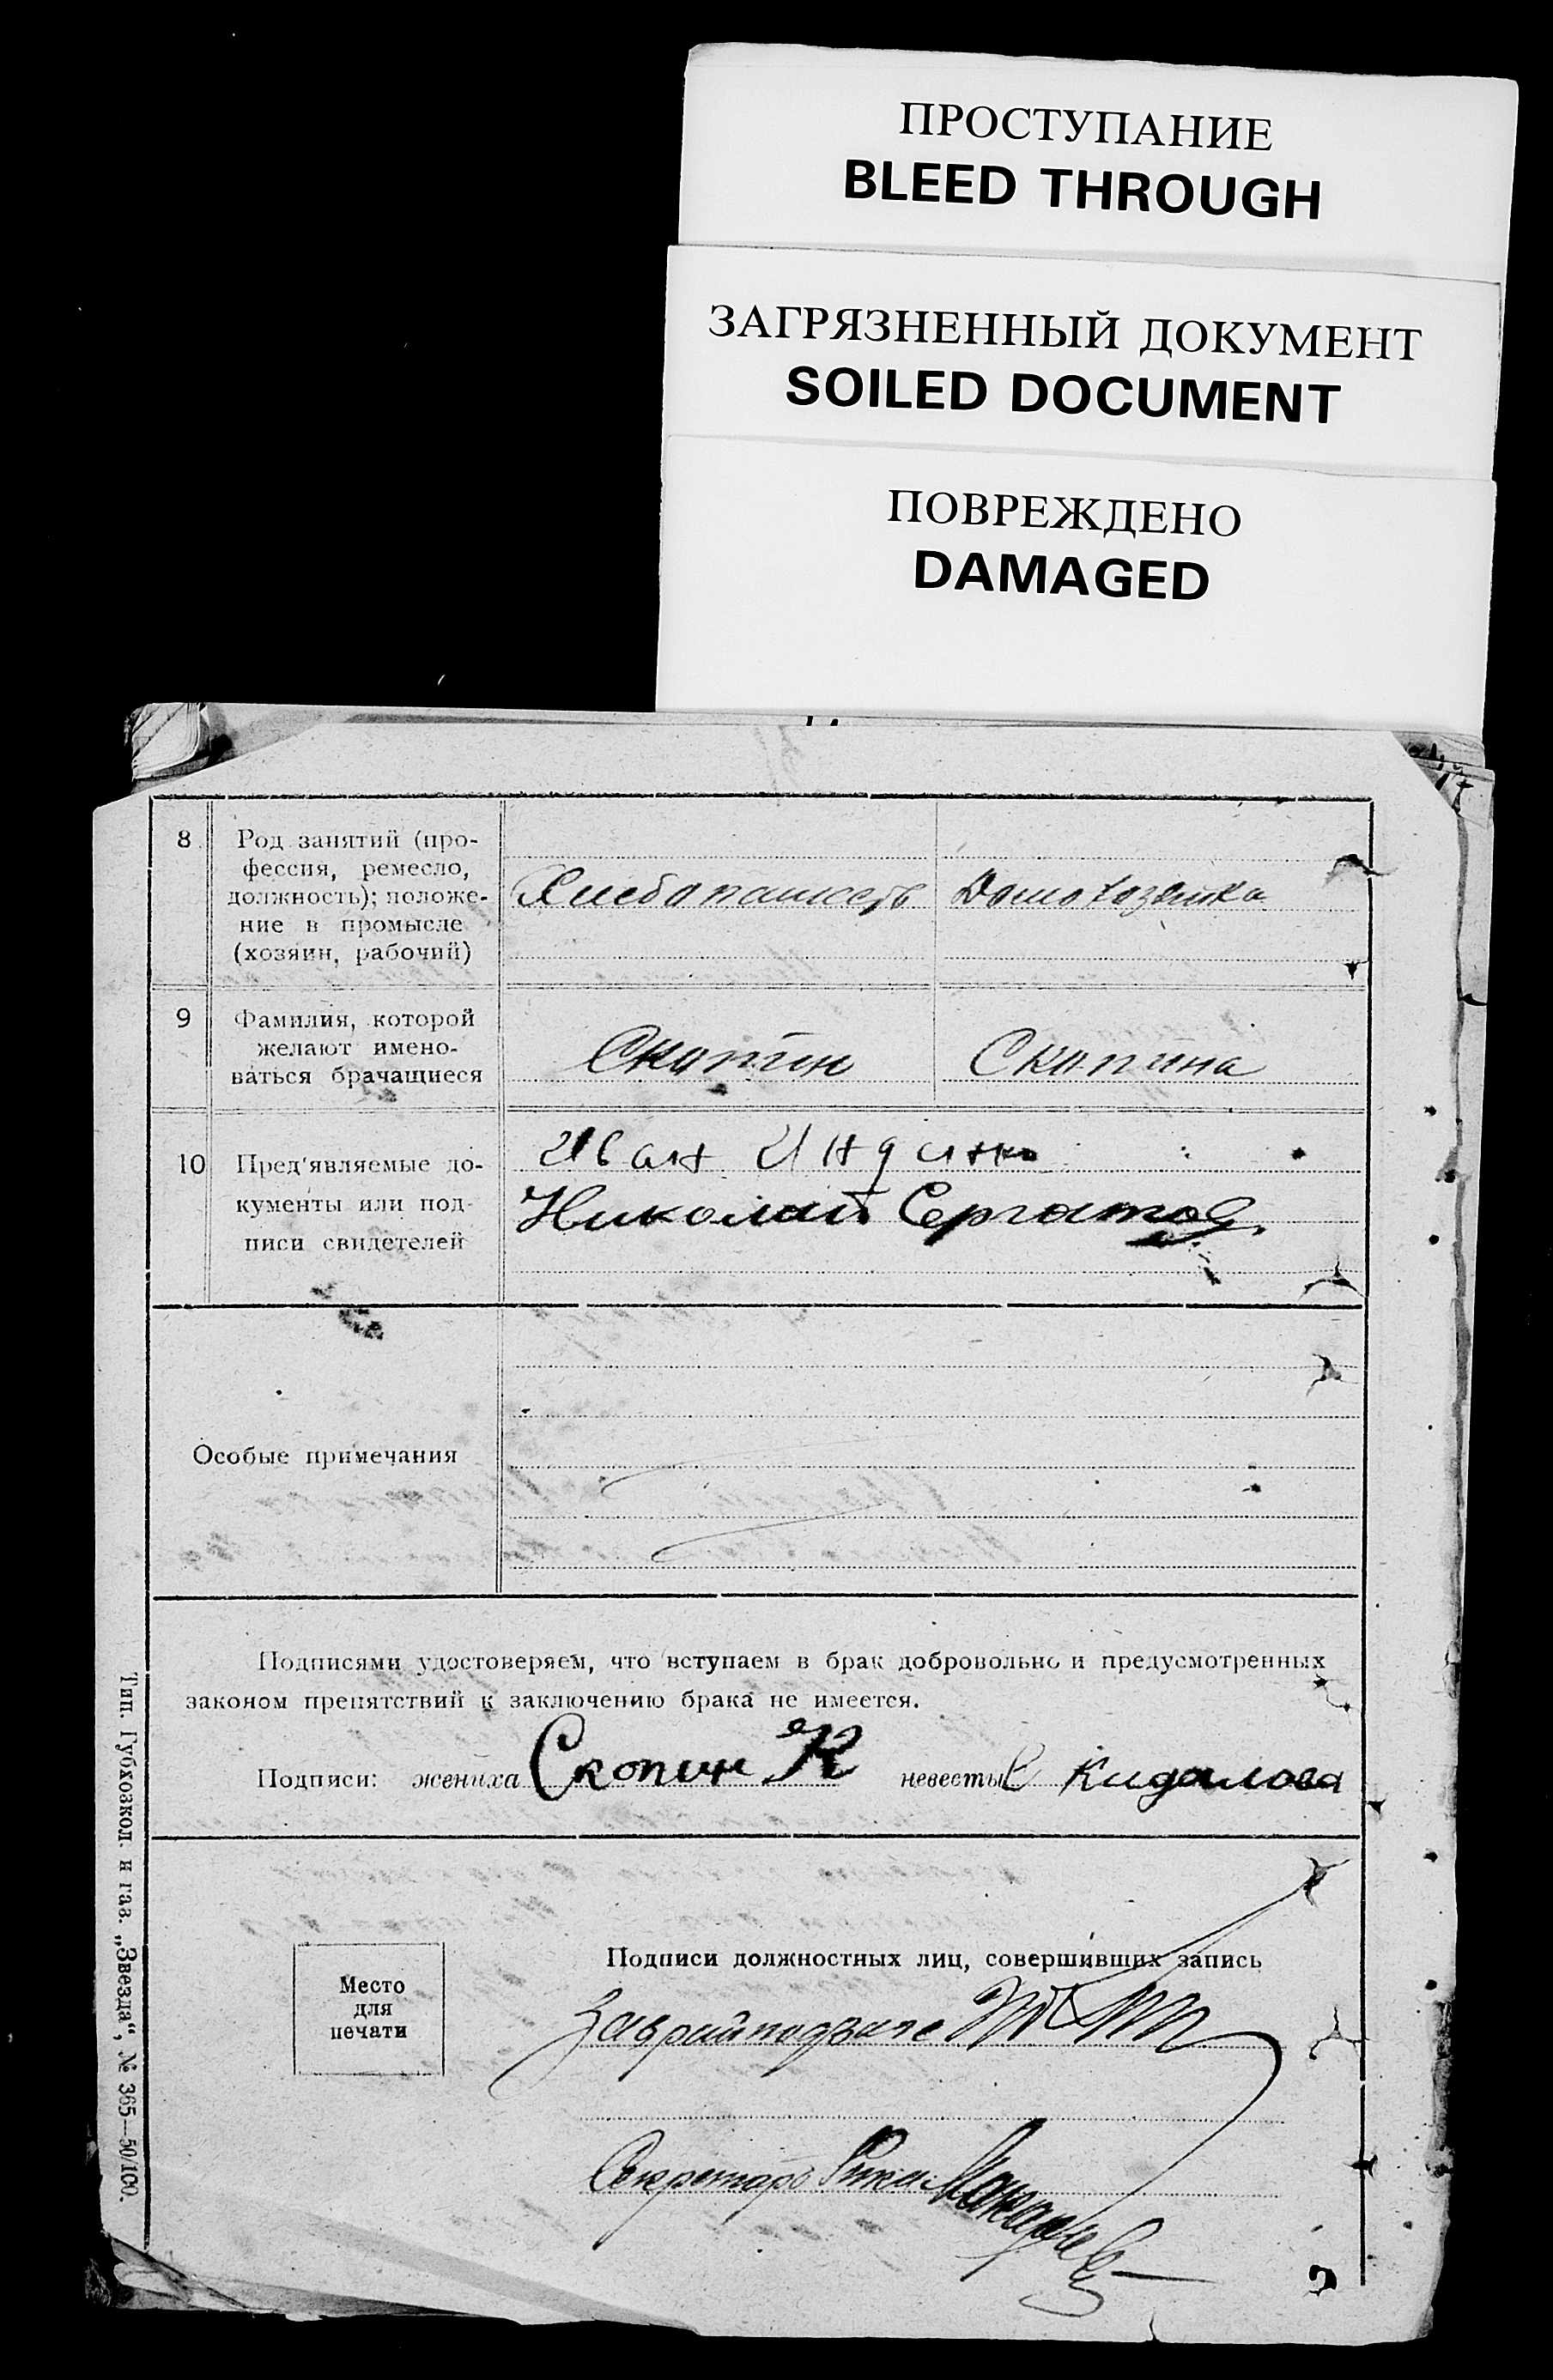 ПРОСТУПАНИЕ
BLEED THROUGH
ЗАГРЯЗНЕННЫЙ ДОКУМЕНТ
SOILED DOCUMENT
ПОВРЕЖДЕНО
DAMAGED
8
Род занятий (про-
фессия, ремесло,
должность); положе-
ние в промысле
(хозяин, рабочий)
Хлебопашест
Домохозяйка
9
Фамилия, которой
желают имено-
ваться брачащиеся
Скопин
Скопина
10
Пред'являемые до-
кументы или под-
писи свидетелей
Иван
Николай Сергатов
Особые примечания
Подписями удостоверяем, что вступаем в брак добровольно и предусмотренных
законом препятствий к заключению брака не имеется.
Подписи: жениха Скопин К невесты С Кидалова
Место
для
печати
Подписи должностных лиц, совершивших запись
Заврайподзагс
Секретарь Рика Макарьев
Тип. Губхозкол. и газ. „Звезда", № 365—50/100.